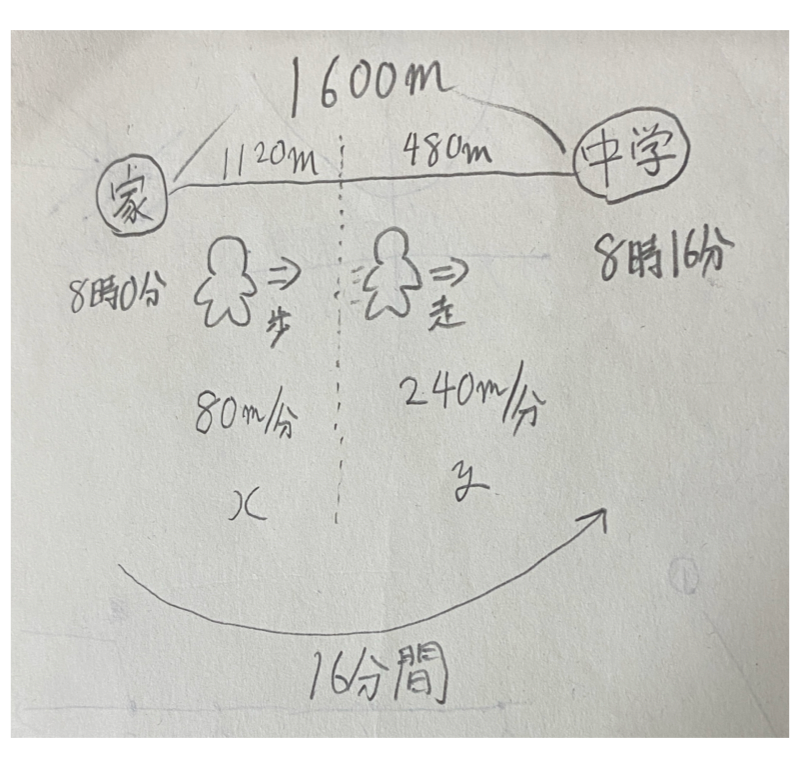 1600m
1120m 480m
家 中学
8時0分 8時16分
歩 走
80m/分 240m/分
x y
16分間